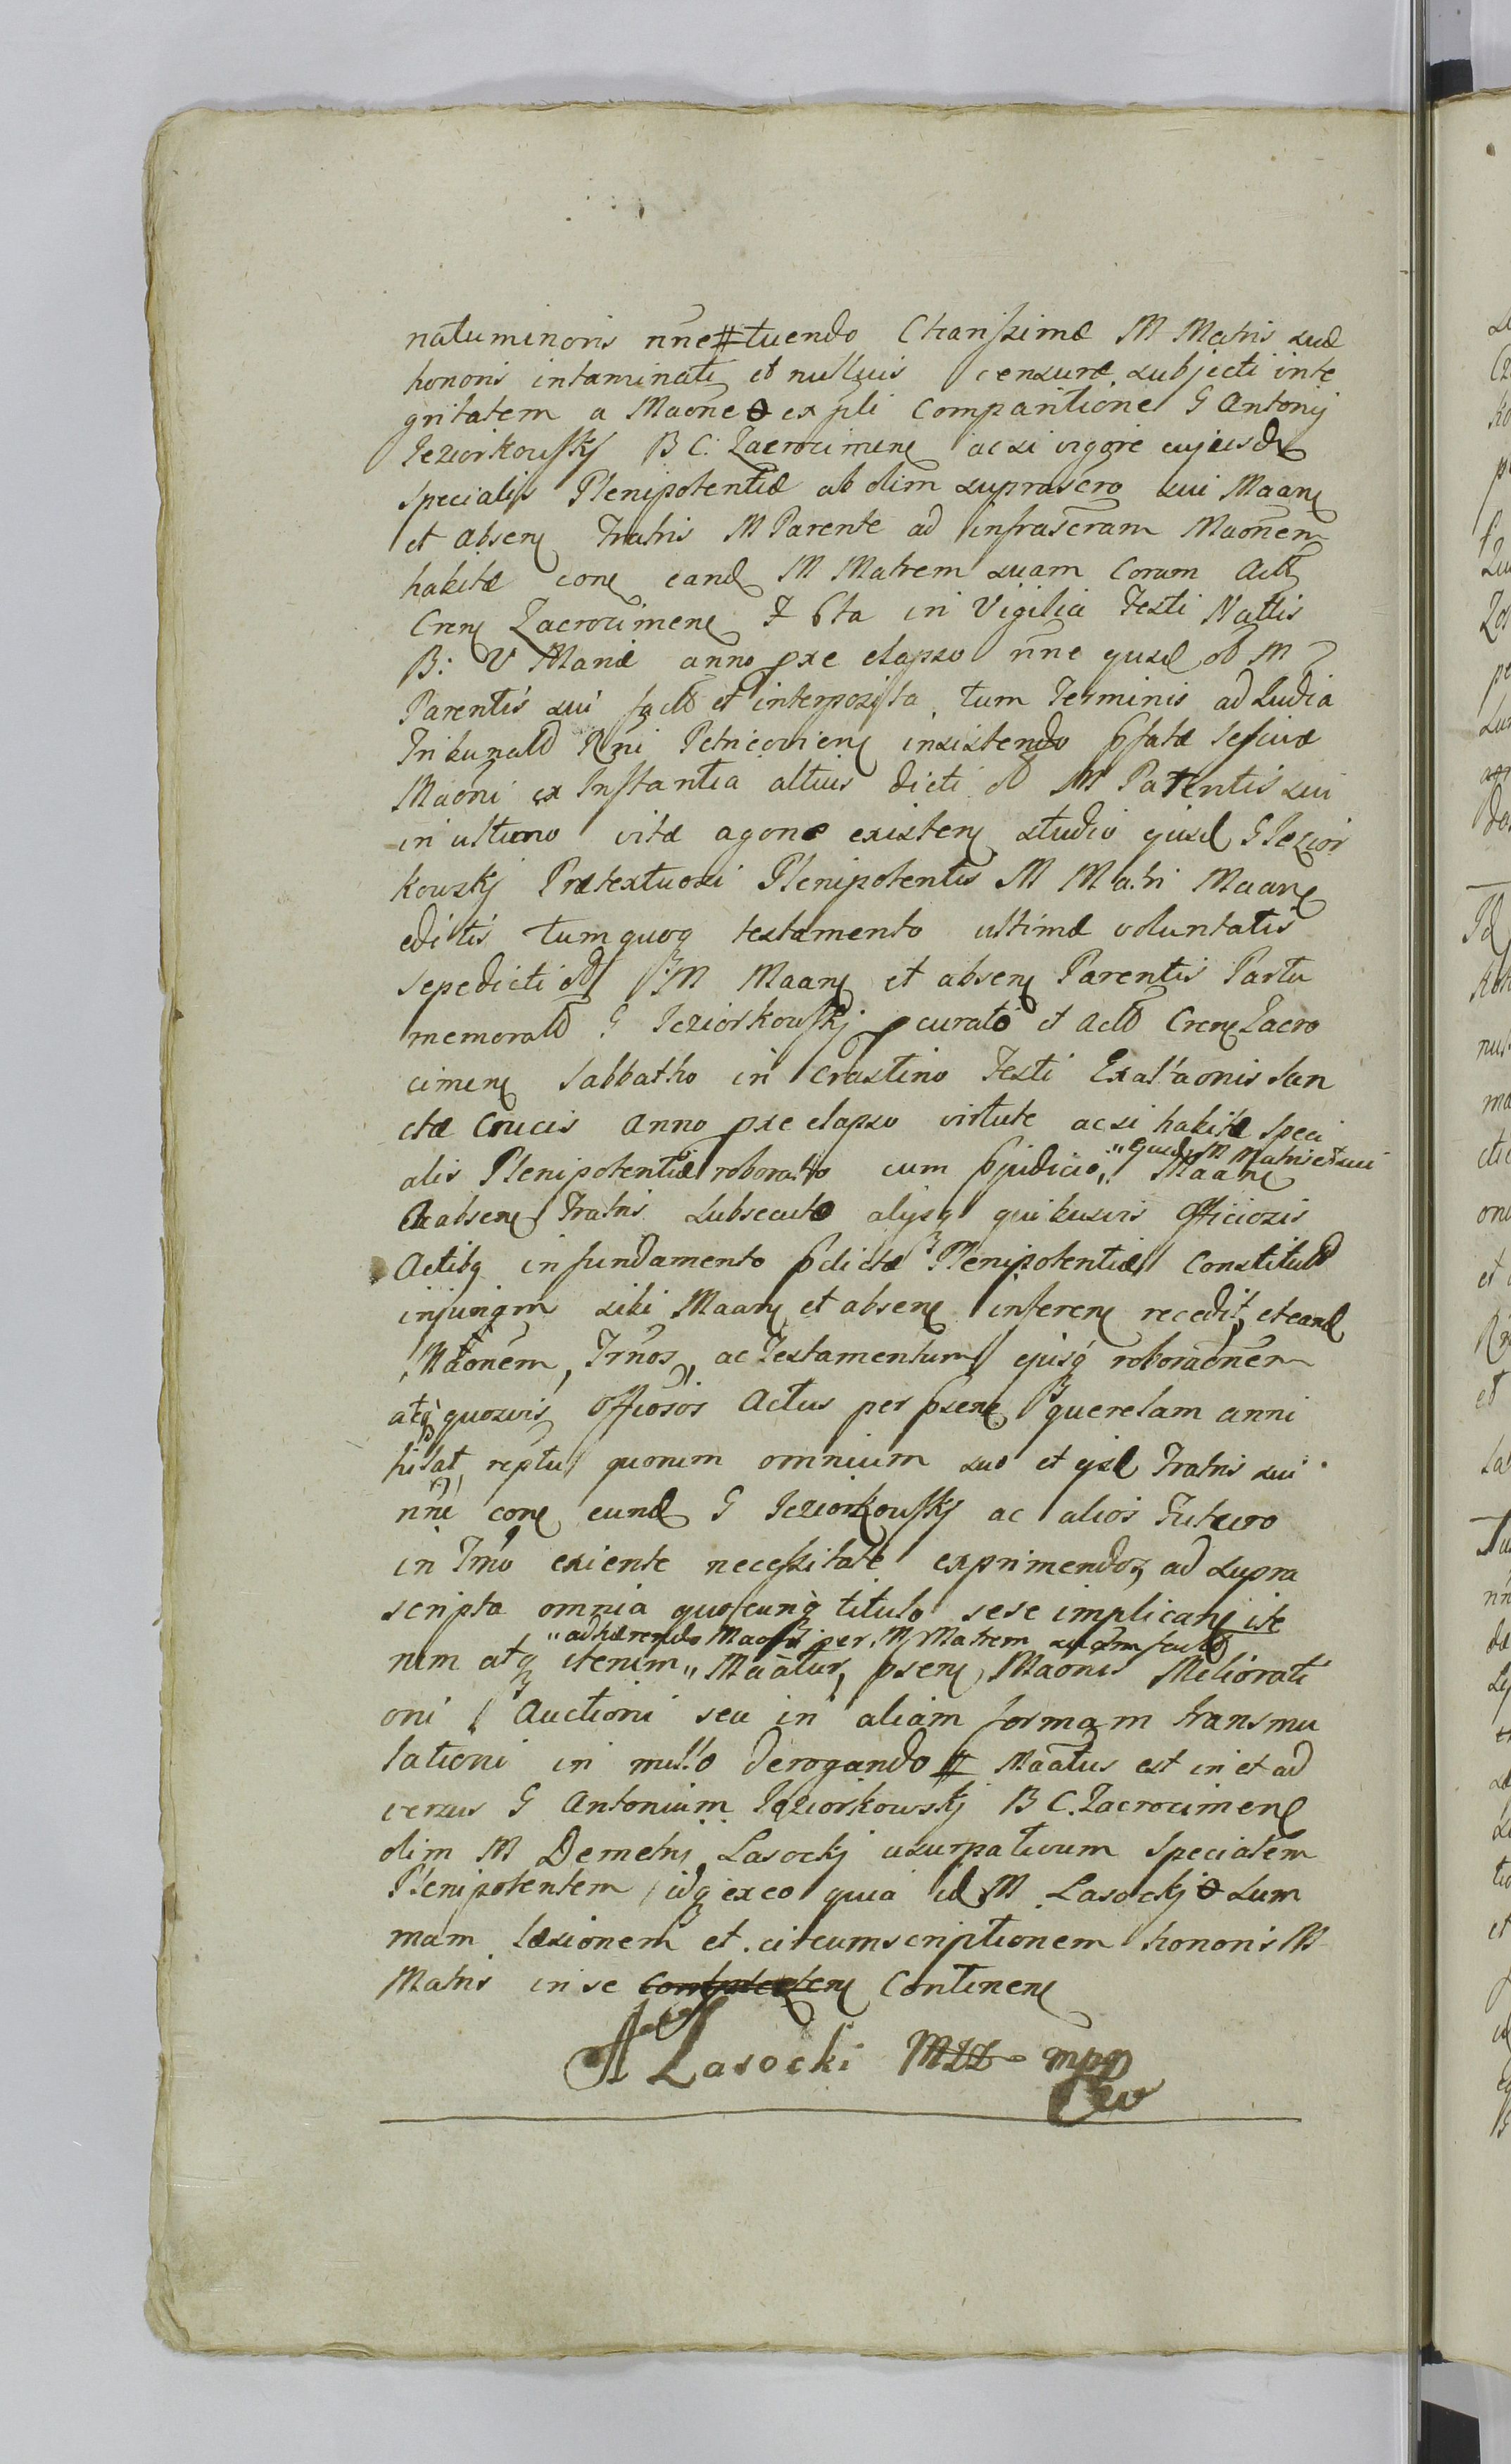 natuminoris nne # tuendo Charissimæ M Matris suæ
honoris intaminati et nullius censuræ subjecti inte
gritatem a Maone ex psli Comparitione G Antonij
Jeziorkowskj B C: Zacrocimen ac si vigore cujusd
specialis Plenipotentiæ ab olim suprascro sui Maan
et absen Fratris M Parente ad infrascram Maonem
habitæ con eand M Matrem suam Coram Actis
Cren Zacrocimen F 6ta in Vigilia Festi Nattis
B: V Mariæ anno pxe elapso nne ejusd ol M
Parentis sui facta et interposita, tum Terminis ad Judia
Tribunal Rni Petricovien insistendo pfatæ lesivæ
Maoni ex Instantia altius dicti ol M Parentis sui
in ultimo vitæ agone existen studio ejusd G Jezior
kowskj Prætextuosi Plenipotentis M Matri Maan
editis tumquoq testamento ultimæ voluntatis
sepedicti ol M Maan et absen Parentis Partu
memorati G Jeziorkowskj pcurato et Actis Cren Zacro
cimen Sabbatho in Crastino Festi Exaltaonis San
ctæ Crucis anno pxe elapso virtute ac si habitæ Speci
alis Plenipotentiæ roborato cum pjudicio " ejusd M Matris et sui " Maan
et absen Fratris subsecuto alijsq quibusvis officiosis
Actibq in fundamento pdictæ Plenipotentiæ Constitut
injungm sibi Maan et absen inferen recedit, et eand
Maonem, Trnos, ac Testamentum ejusq roboraonem
atq quosvis Offiosos Actus per psen querelam anni
hilat reptu quorum omnium suo et ejsd Fratris sui
nne con eund G Jeziorkowskj ac alios Futuro
in Tmo exiente necessitate exprimendos, ad supra
scripta omnia quocunq titulo sese implican ite
rum atq iterum " adhærendo Maoni per M Matrem suam fact " Maatur, psen Maonis Meliorati
oni Auctioni seu in aliam formam transmu
tationi in nullo derogando # Maatus est in et ad
versus G Antonium Jeziorkowskj B C. Zacrocimen
olim M Demetrij Lasockj usurpativum Specialem
Plenipotentem idq ex eo quia id M Lasockj sum
mam læsionem et circumscriptionem honoris M
Matris in se Continen
A Lasocki MZZ mpp